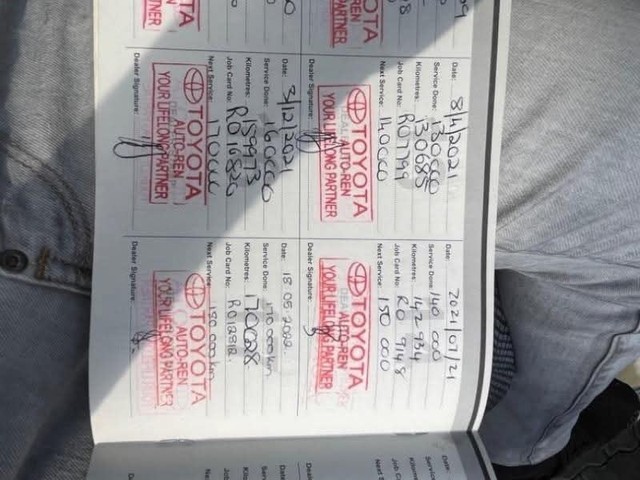 Date: 8/4/2021
Service Done: 130000
Kilometres: 130685
Job Card No: RO7799
Next Service: 140000
Dealer Signature:
TOYOTA
AUTO-REN
YOUR LIFELONG PARTNER
Date: 2021/07/21
Service Done: 140 000
Kilometres: 142934
Job Card No: RO 9148
Next Service: 150 000
Dealer Signature:
TOYOTA
AUTO-REN
YOUR LIFELONG PARTNER
Date: 3/12/2021
Service Done: 160000
Kilometres: 159973
Job Card No: RO10820
Next Service: 170000
Dealer Signature:
TOYOTA
AUTO-REN
YOUR LIFELONG PARTNER
Date: 18 05 2022
Service Done: 170 000km
Kilometres: 170028
Job Card No: RO12812
Next Service: 180 000km
Dealer Signature:
TOYOTA
AUTO-REN
YOUR LIFELONG PARTNER